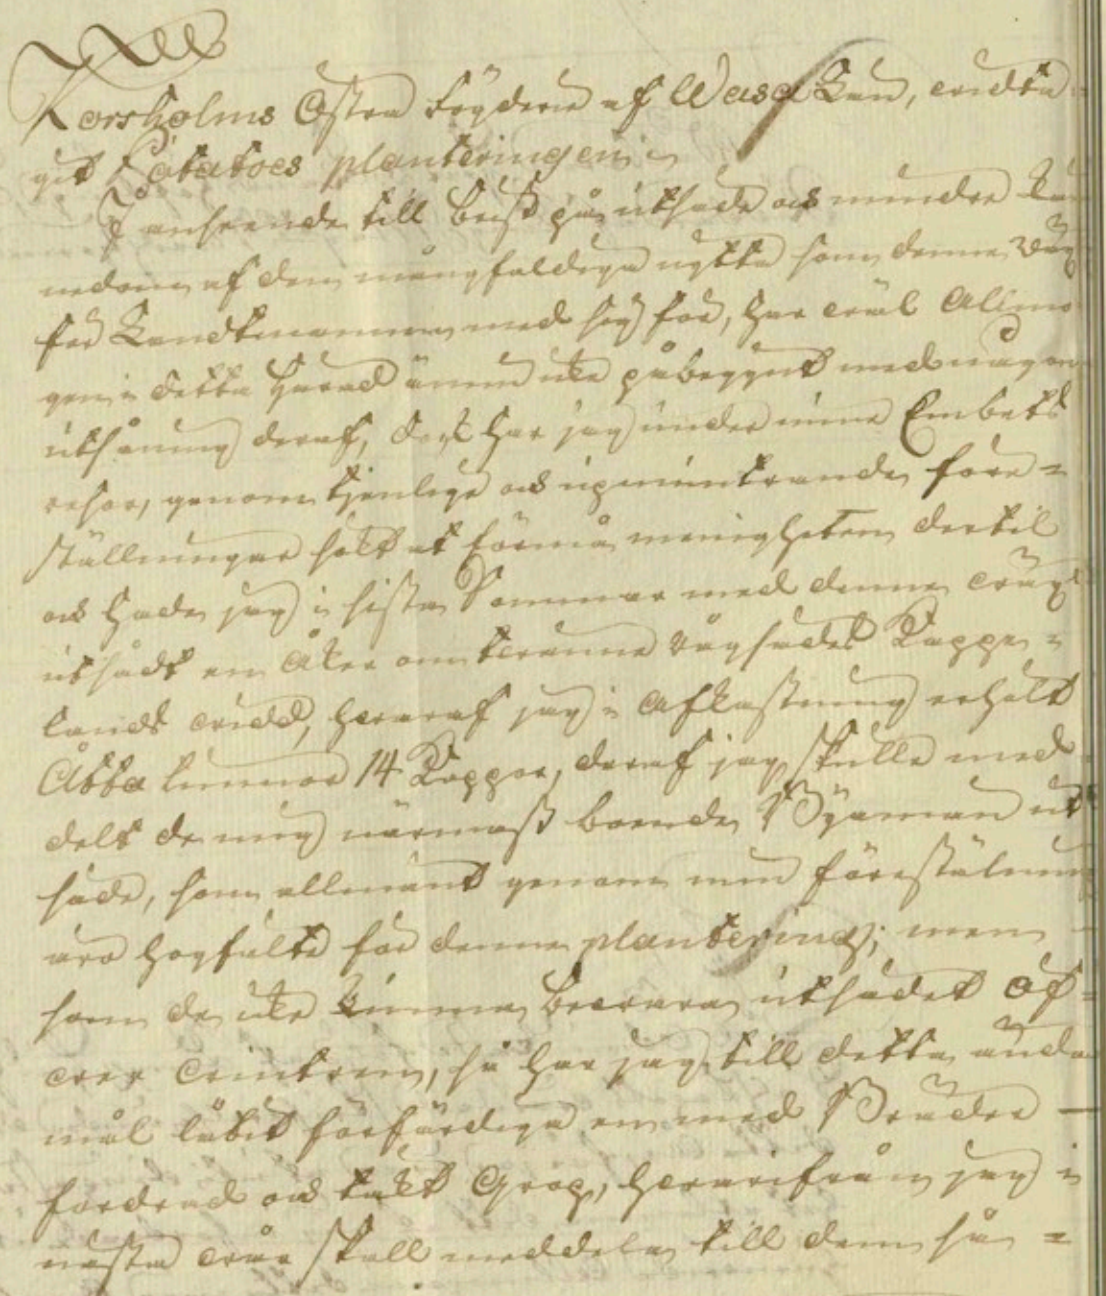 Korsholms Östra Fögderie af Wasa Län, widta
git Potatoes planteringen
I anseende till brist på utsäde och mindre kän
nedom af den mångfaldiga nytta som denna wäxt
för Landtmannen med sig för, har wäl Allmo
gen i detta Härad ännu icke påbegynt med någon
utsåning deraf, dock har jag under mina Embets
resor, genom tjenlige och upmuntrande före=
ställningar sökt at förmå menigheten dertil
och hade jag i sista Sommar med denna wäxt
utsådt en Åker om trenne rågsädes Kappe=
lands widd, hwaraf jag i afkastning erhölt
Åtta tunnor 14 Kappar, deraf jag skulle med
delt de mig närmast boende Byamän ut
säde, som allmänt genom min föreställning
äro hogfälte för denna plantering; men
som de icke kunna bewara utsädet öf=
wer wintren, så har jag till detta ända
mål låtit förfärdiga en med Bräder
fordrad och täkt Grop, hwarifrån jag i
nästa wår skall meddela till dem så=